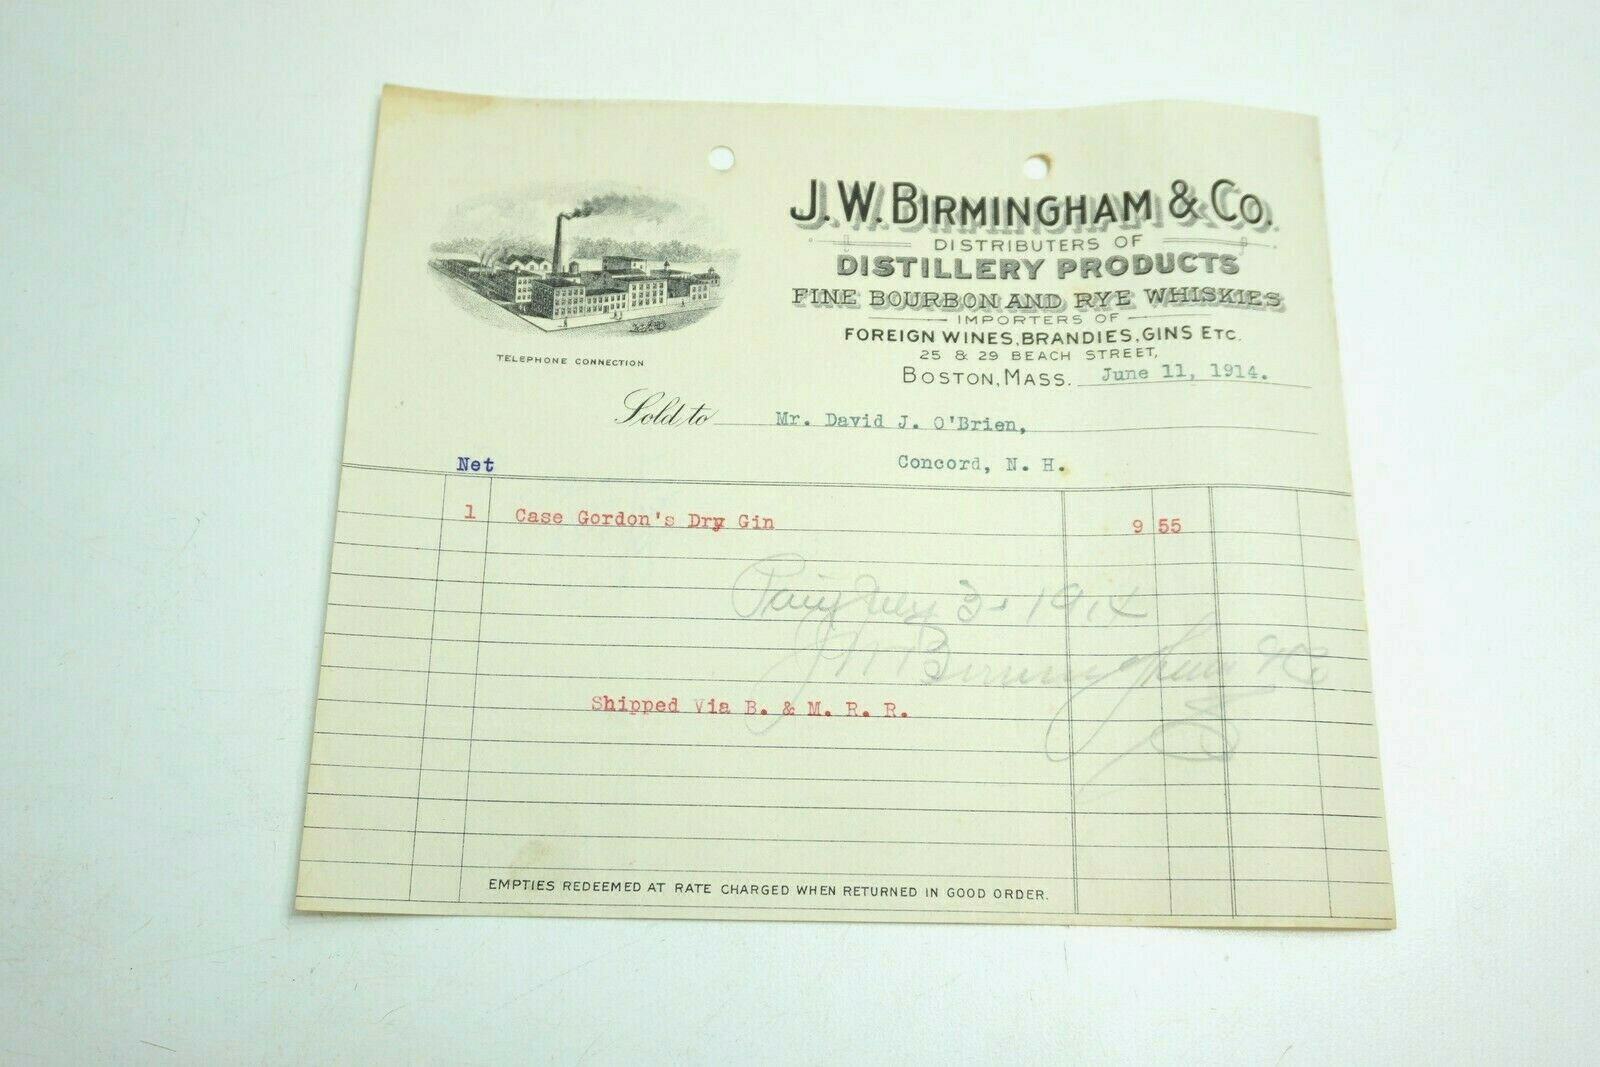 J. W. BIRMINGHAM & CO.
DISTRIBUTERS OF
DISTILLERY PRODUCTS
FINE BOURBON AND RYE WHISKIES
IMPORTERS OF
FOREIGN WINES, BRANDIES, GINS ETC.
25 & 29 BEACH STREET,
TELEPHONE CONNECTION
BOSTON, MASS. June 11, 1914.
Sold to Mr. David J. O'Brien,
Net Concord, N. H.
1 Case Gordon's Dry Gin 9 55
Paid July 3, 1914
J W Birmingham & Co
Shipped Via B. & M. R. R.
EMPTIES REDEEMED AT RATE CHARGED WHEN RETURNED IN GOOD ORDER.